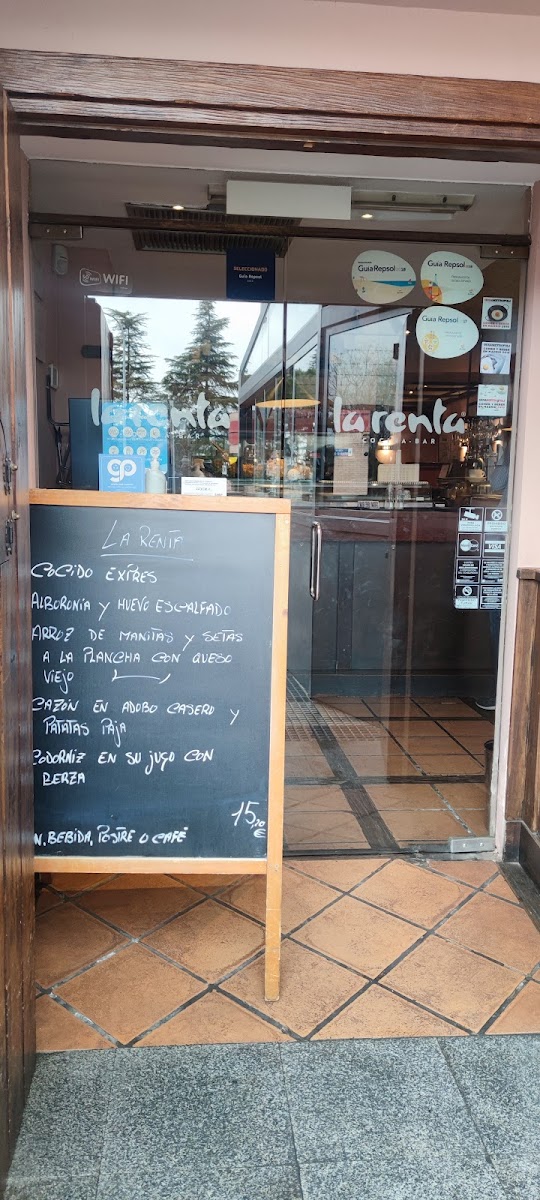 WIFI
SELECCIONADO
Guía Repsol
Guía Repsol
Guía Repsol
Guía Repsol
la renta
la renta
COCINA-BAR
gp
VISA
LA RENTA
COCIDO EXTRES
ALBORONÍA Y HUEVO ESCALFADO
ARROZ DE MANITAS Y SETAS
A LA PLANCHA CON QUESO
VIEJO
CAZON EN ADOBO CASERO Y
PATATAS PAJA
CODORNIZ EN SU JUGO CON
BERZA
N. BEBIDA, POSTRE O CAFÉ
€